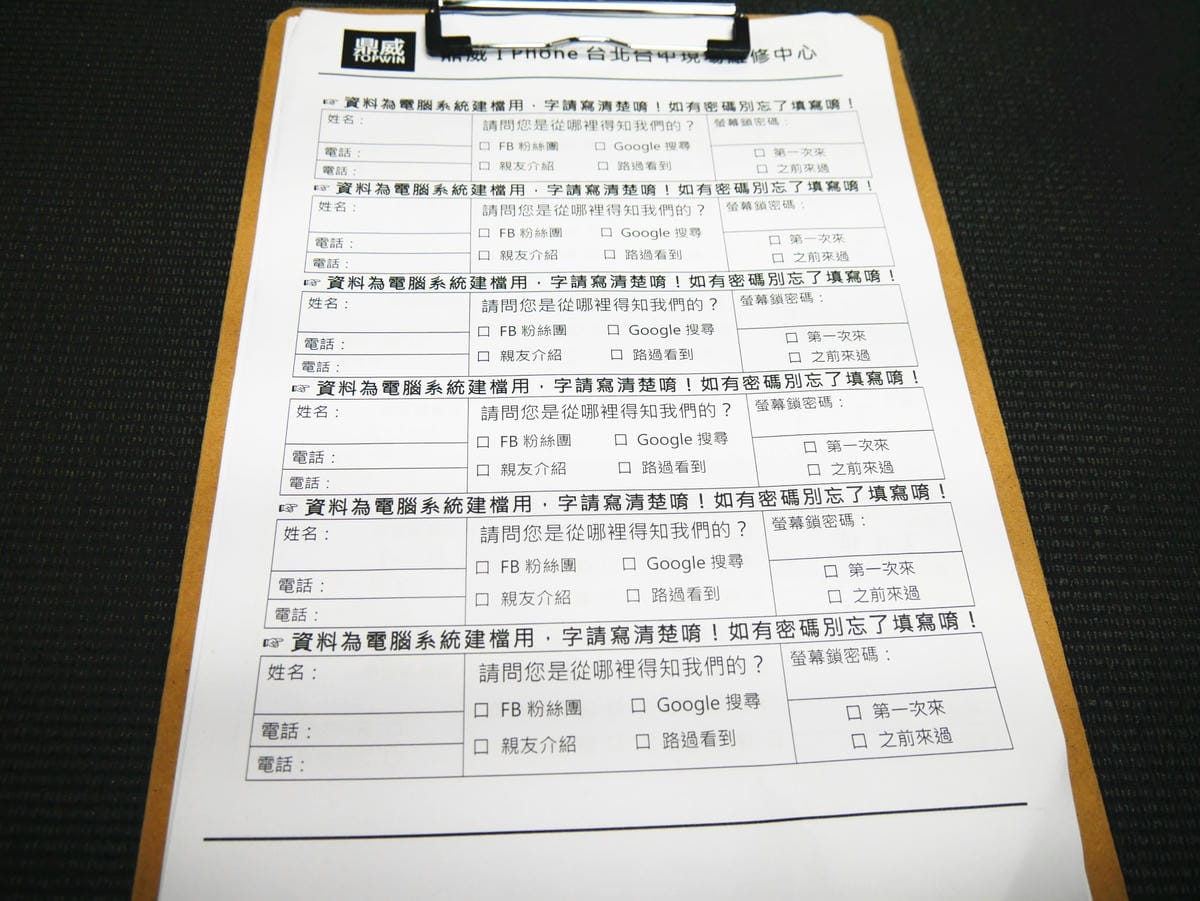 鼎威
TOPWIN
鼎威 I Phone 台北台中現場維修中心
☞ 資料為電腦系統建檔用，字請寫清楚唷！如有密碼別忘了填寫唷！
姓名： 請問您是從哪裡得知我們的？ 螢幕鎖密碼：
□ FB 粉絲團 □ Google 搜尋
電話： □ 第一次來
□ 親友介紹 □ 路過看到
電話： □ 之前來過
☞ 資料為電腦系統建檔用，字請寫清楚唷！如有密碼別忘了填寫唷！
姓名： 請問您是從哪裡得知我們的？ 螢幕鎖密碼：
□ FB 粉絲團 □ Google 搜尋
電話： □ 第一次來
□ 親友介紹 □ 路過看到
電話： □ 之前來過
☞ 資料為電腦系統建檔用，字請寫清楚唷！如有密碼別忘了填寫唷！
姓名： 請問您是從哪裡得知我們的？ 螢幕鎖密碼：
□ FB 粉絲團 □ Google 搜尋
電話： □ 第一次來
□ 親友介紹 □ 路過看到
電話： □ 之前來過
☞ 資料為電腦系統建檔用，字請寫清楚唷！如有密碼別忘了填寫唷！
姓名： 請問您是從哪裡得知我們的？ 螢幕鎖密碼：
□ FB 粉絲團 □ Google 搜尋
電話： □ 第一次來
□ 親友介紹 □ 路過看到
電話： □ 之前來過
☞ 資料為電腦系統建檔用，字請寫清楚唷！如有密碼別忘了填寫唷！
姓名： 請問您是從哪裡得知我們的？ 螢幕鎖密碼：
□ FB 粉絲團 □ Google 搜尋
電話： □ 第一次來
□ 親友介紹 □ 路過看到
電話： □ 之前來過
☞ 資料為電腦系統建檔用，字請寫清楚唷！如有密碼別忘了填寫唷！
姓名： 請問您是從哪裡得知我們的？ 螢幕鎖密碼：
□ FB 粉絲團 □ Google 搜尋
電話： □ 第一次來
□ 親友介紹 □ 路過看到
電話： □ 之前來過